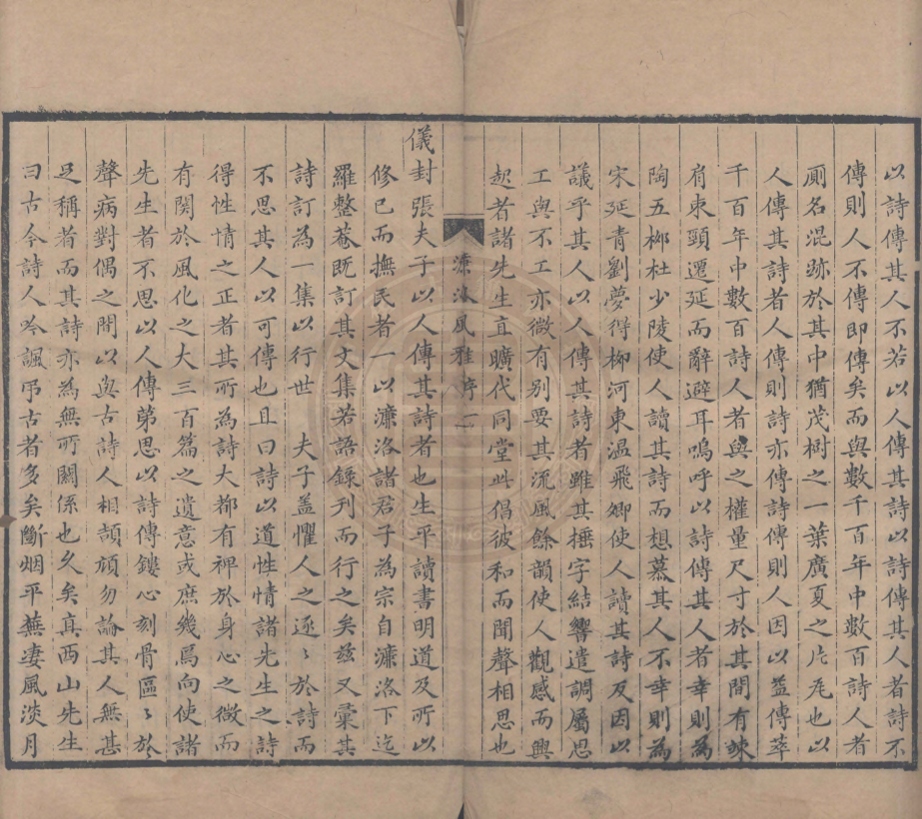 以詩傳其人不若以人傳其詩以詩傳其人者詩不
傳則人不傳即傳矣而與數千百年中數百詩人者
厠名混跡於其中猶茂樹之一葉廣夏之片瓦也以
人傳其詩者人傳則詩亦傳詩傳則人因以益傳萃
千百年中數百詩人者與之權量尺寸於其間有竦
肩束頸遷延而辭避耳嗚呼以詩傳其人者幸則為
陶五柳杜少陵使人讀其詩而想慕其人不幸則為
宋延青劉夢得柳河東温飛卿使人讀其詩反因以
議乎其人以人傳其詩者雖其捶字結響遣調屬思
工與不工亦微有别要其流風餘韻使人觀感而興
起者諸先生直曠代同堂此倡彼和而聞聲相思也
濂洛風雅 序 二
儀封張夫子以人傳其詩者也生平讀書明道及所以
修已而撫民者一以濂洛諸君子為宗自濂洛下迄
羅整菴既訂其文集若語錄刊而行之矣兹又彙其
詩訂為一集以行世 夫子盖懼人之逐〻於詩而
不思其人以可傳也且曰詩以道性情諸先生之詩
得性情之正者其所為詩大都有裨於身心之微而
有関於風化之大三百篇之遺意或庶幾焉向使諸
先生者不思以人傳第思以詩傳鏤心刻骨區〻於
聲病對偶之間以與古詩人相頡頏勿論其人無甚
足稱者而其詩亦為無所關係也久矣真西山先生
曰古今詩人吟諷弔古者多矣斷烟平蕪凄風淡月